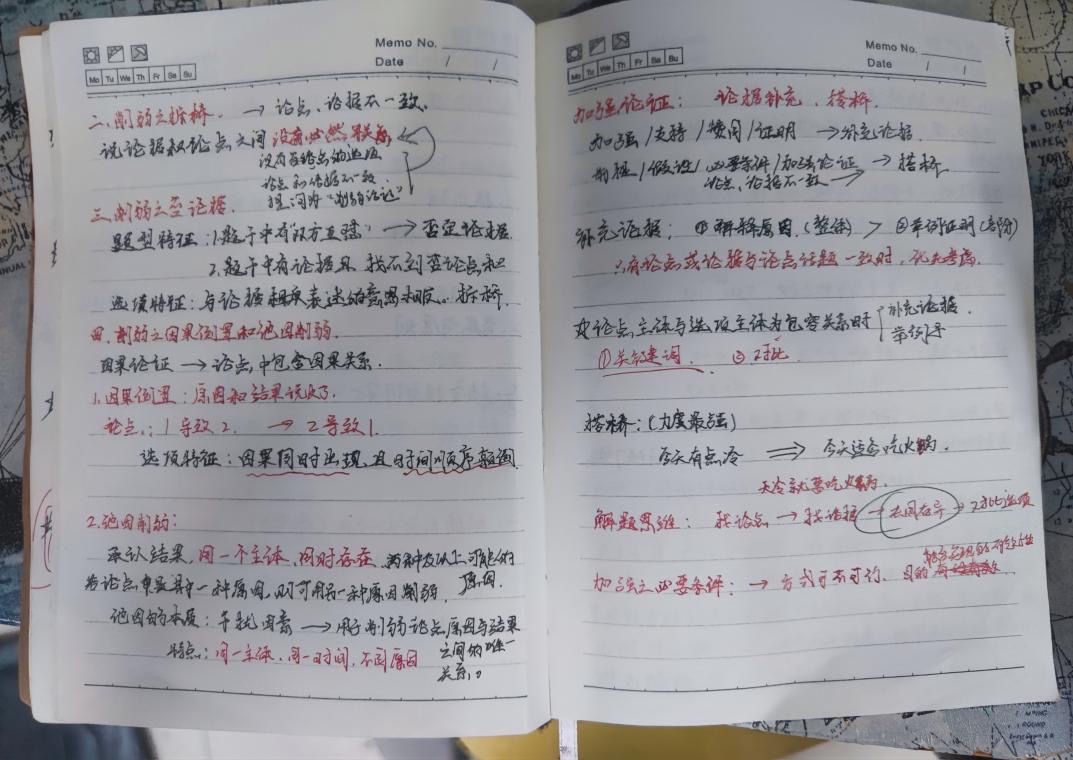 Memo No.
Date / /
Mo Tu We Th Fr Sa Su
二、削弱之拆桥. → 论点、论据不一致.
说论据和论点之间没有必然联系
论点和论据不一致.
提问为“削弱论证”
三、削弱之否论据.
题型特征：1.题干中有双方互怼 → 否定论据.
2.题干中有论据且找不到否论点和
拆桥.
选项特征：与论据相关表述的意思相反.
四、削弱之因果倒置和他因削弱.
因果论证 → 论点中包含因果关系.
1.因果倒置：原因和结果说反了.
论点：1导致2. → 2导致1.
选项特征：因果同时出现，且时间顺序颠倒
2.他因削弱：
承认结果，同一个主体、同时存在、两种及以上可能的
原因.
若论点中是其中一种原因，则可用另一种原因削弱.
他因的本质：干扰因素 → 用于削弱论点原因与结果
之间的唯一
关系.
特点：同一主体、同一时间，不同原因
Memo No.
Date / /
Mo Tu We Th Fr Sa Su
加强论证： 论据补充、搭桥.
加强/支持/赞同/证明 → 补充论据
前提/假设/必要条件/加强论证 → 搭桥
论点、论据不一致
补充论据：①解释原因.（整体） > ②举例证明（部分）
只有论点或论据与论点话题一致时，优先考虑.
论点主体与选项主体为包容关系时
补充论据.
举例子
①关键词. ②对比
搭桥：（力度最强）
今天有点冷 ⇒ 今天适合吃火锅.
天冷就要吃火锅.
解题思维： 找论点 → 找论据 → 去同存异 → 对比选项
加强之必要条件： → 方式可不可行、目的